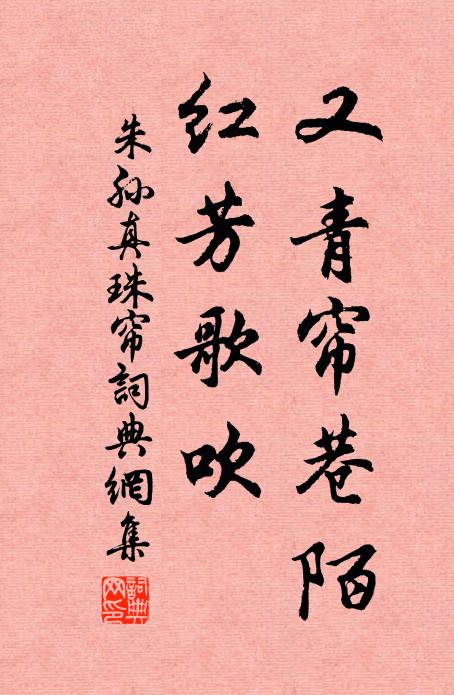 又青帘巷陌
红芳歌吹
朱孙真珠帘詞典網集
詞典网印